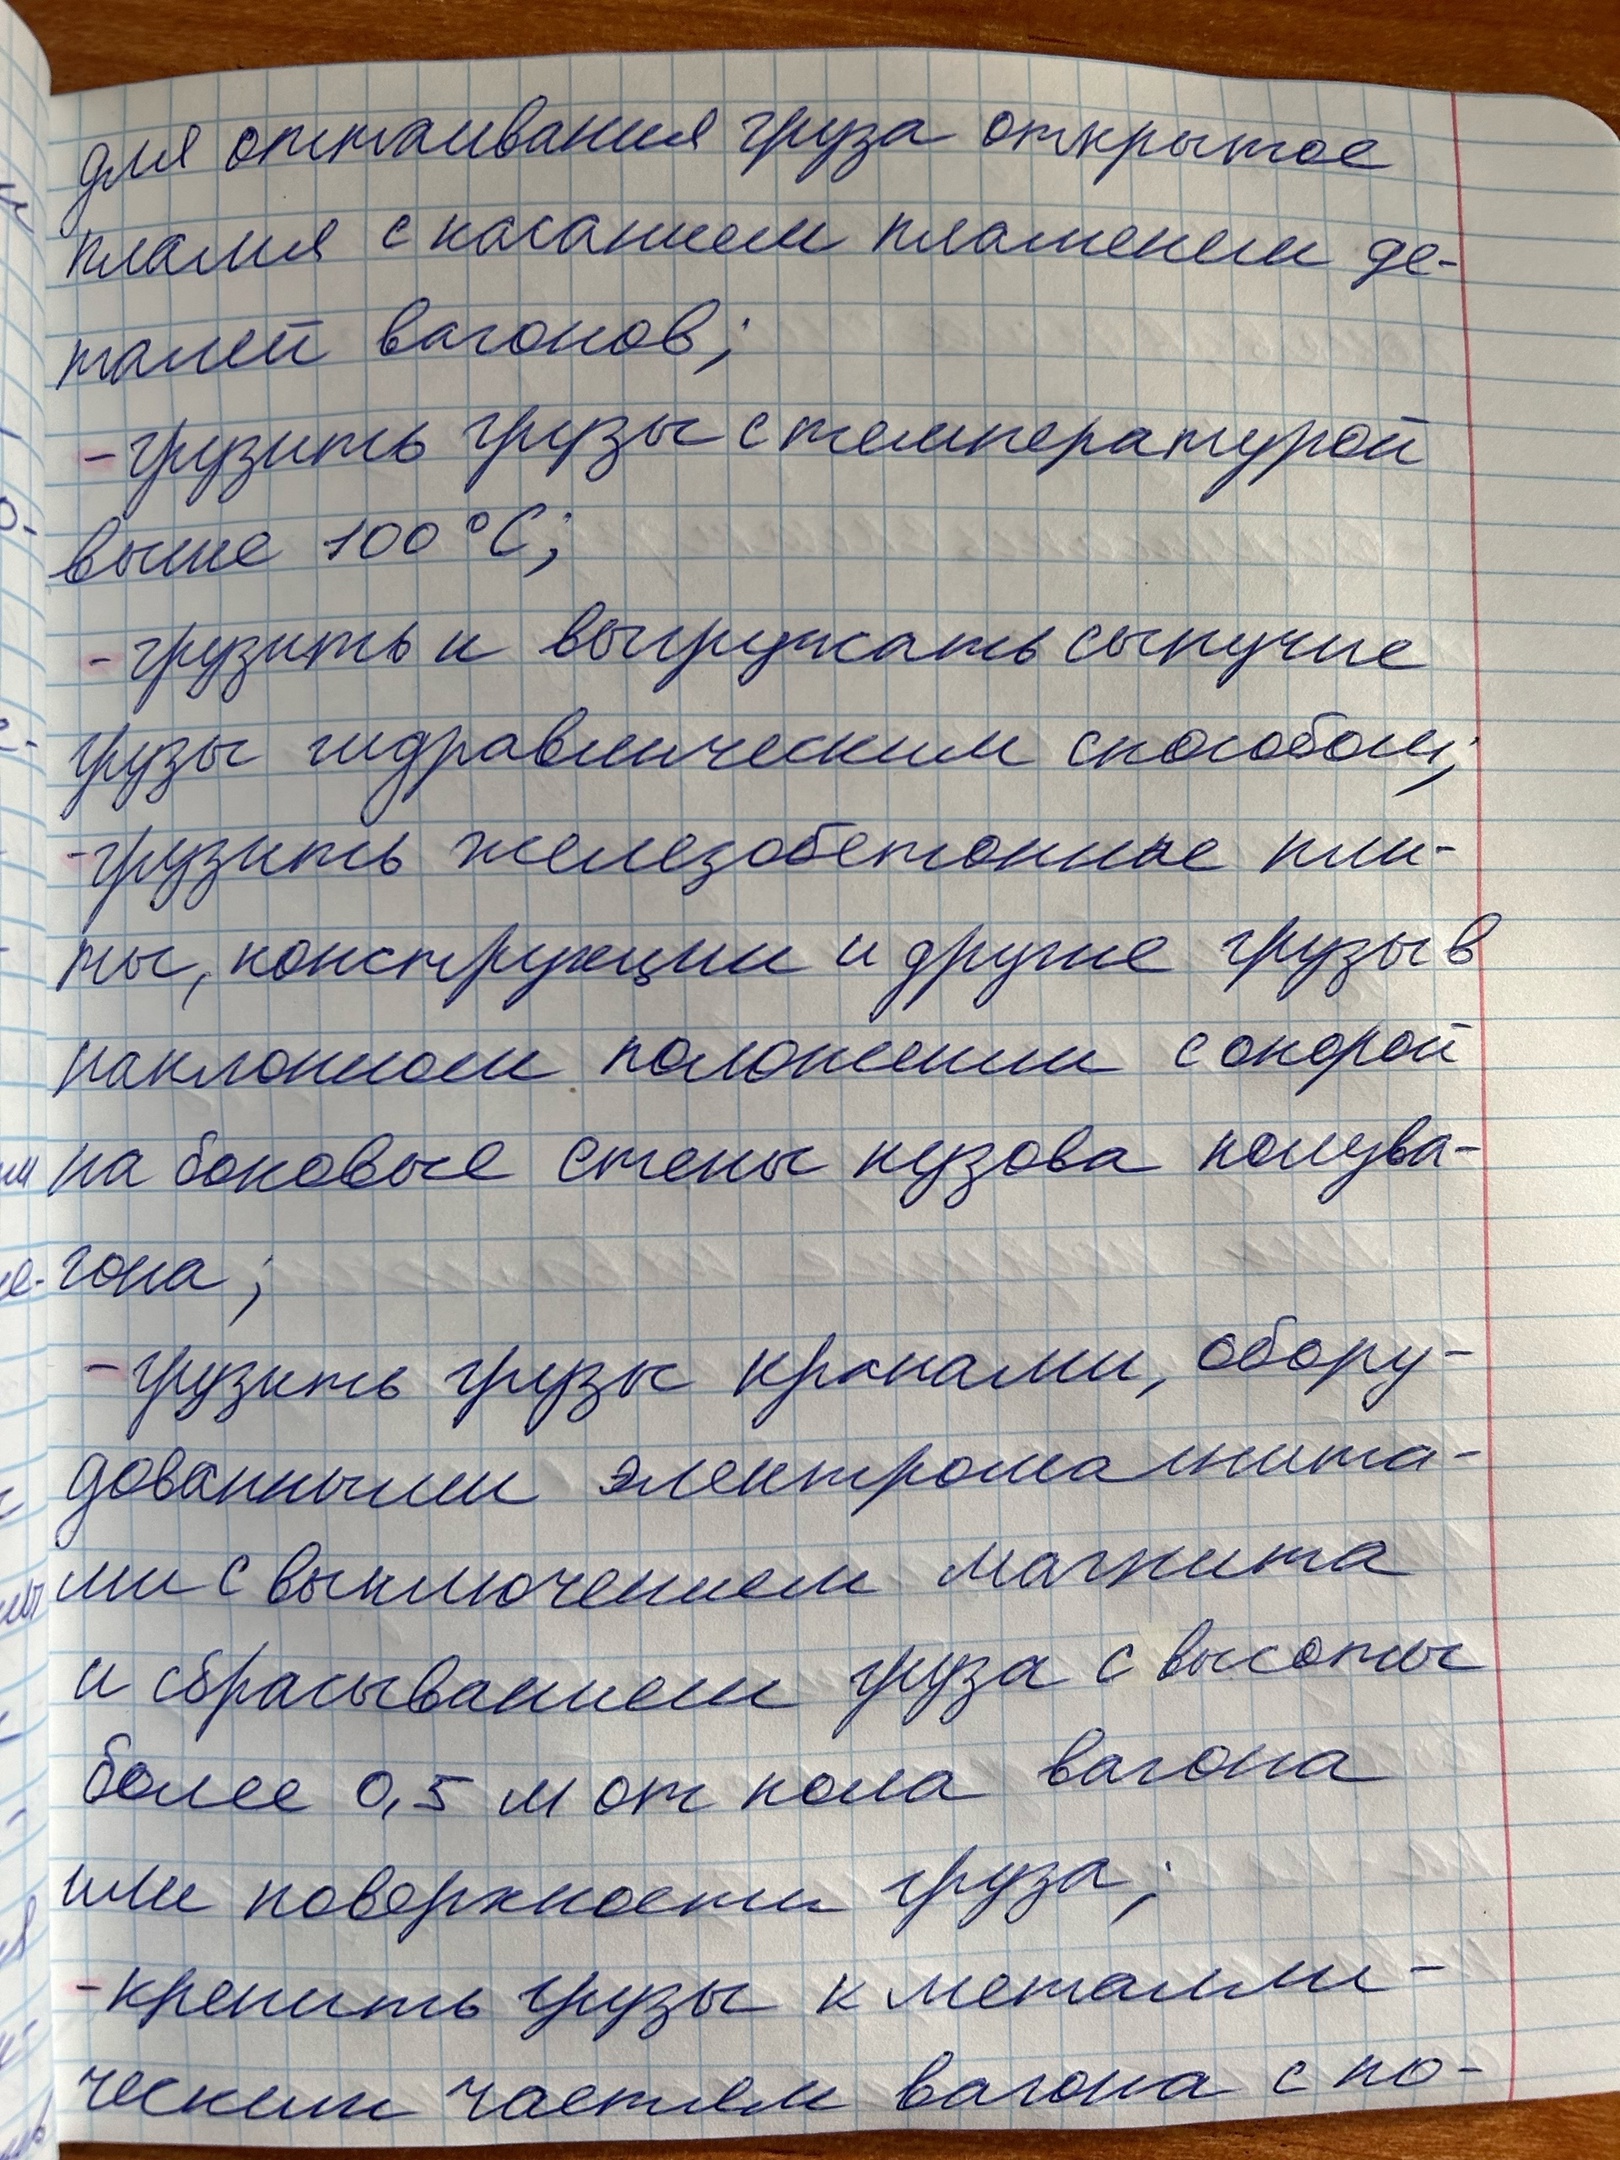 для оттаивания груза открытое
пламя с касанием пламенем де-
талей вагонов;
- грузить грузы с температурой
выше 100°С;
- грузить и выгружать сыпучие
грузы гидравлическим способом;
- грузить железобетонные пли-
ты, конструкции и другие грузы в
наклонном положении с опорой
на боковые стены кузова полува-
гона;
- грузить грузы кранами, обору-
дованными электромагнита-
ми с выключением магнита
и сбрасыванием груза с высоты
более 0,5 м от пола вагона
или поверхности груза;
- крепить грузы к металли-
ческим частям вагона с по-